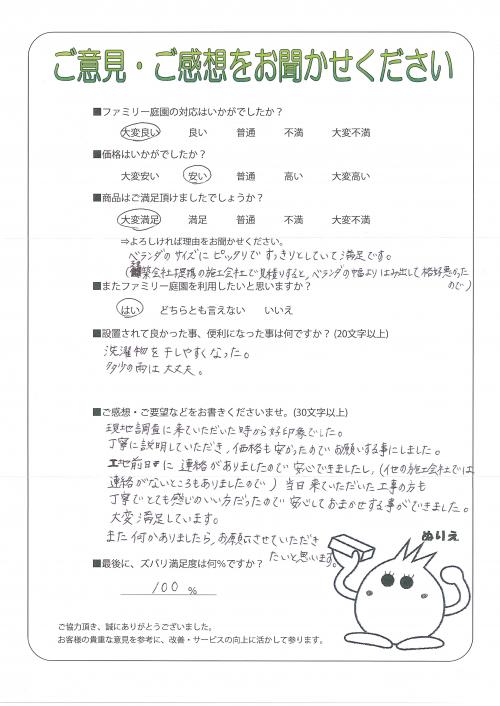 ご意見・ご感想をお聞かせください
■ファミリー庭園の対応はいかがでしたか？
大変良い 良い 普通 不満 大変不満
■価格はいかがでしたか？
大変安い 安い 普通 高い 大変高い
■商品はご満足頂けましたでしょうか？
大変満足 満足 普通 不満 大変不満
⇒よろしければ理由をお聞かせください。
ベランダのサイズにピッタリですっきりとしていて満足です。
(建築会社提携の施工会社で見積りすると、ベランダの幅よりはみ出して格好悪かった
ので)
■またファミリー庭園を利用したいと思いますか？
はい どちらとも言えない いいえ
■設置されて良かった事、便利になった事は何ですか？(20文字以上)
洗濯物を干しやすくなった。
多少の雨は大丈夫。
■ご感想・ご要望などをお書きくださいませ。(30文字以上)
現地調査に来ていただいた時から好印象でした。
丁寧に説明していただき、価格も安かったのでお願いする事にしました。
工事前日に連絡がありましたので安心できましたし、(他の施工会社では
連絡がないところもありましたので) 当日来ていただいた工事の方も
丁寧でとても感じのいい方だったので安心しておまかせする事ができました。
大変満足しています。
また何かありましたら、お願いさせていただき
たいと思います。
ぬりえ
■最後に、ズバリ満足度は何％ですか？
100 ％
ご協力頂き、誠にありがとうございました。
お客様の貴重な意見を参考に、改善・サービスの向上に活かして参ります。